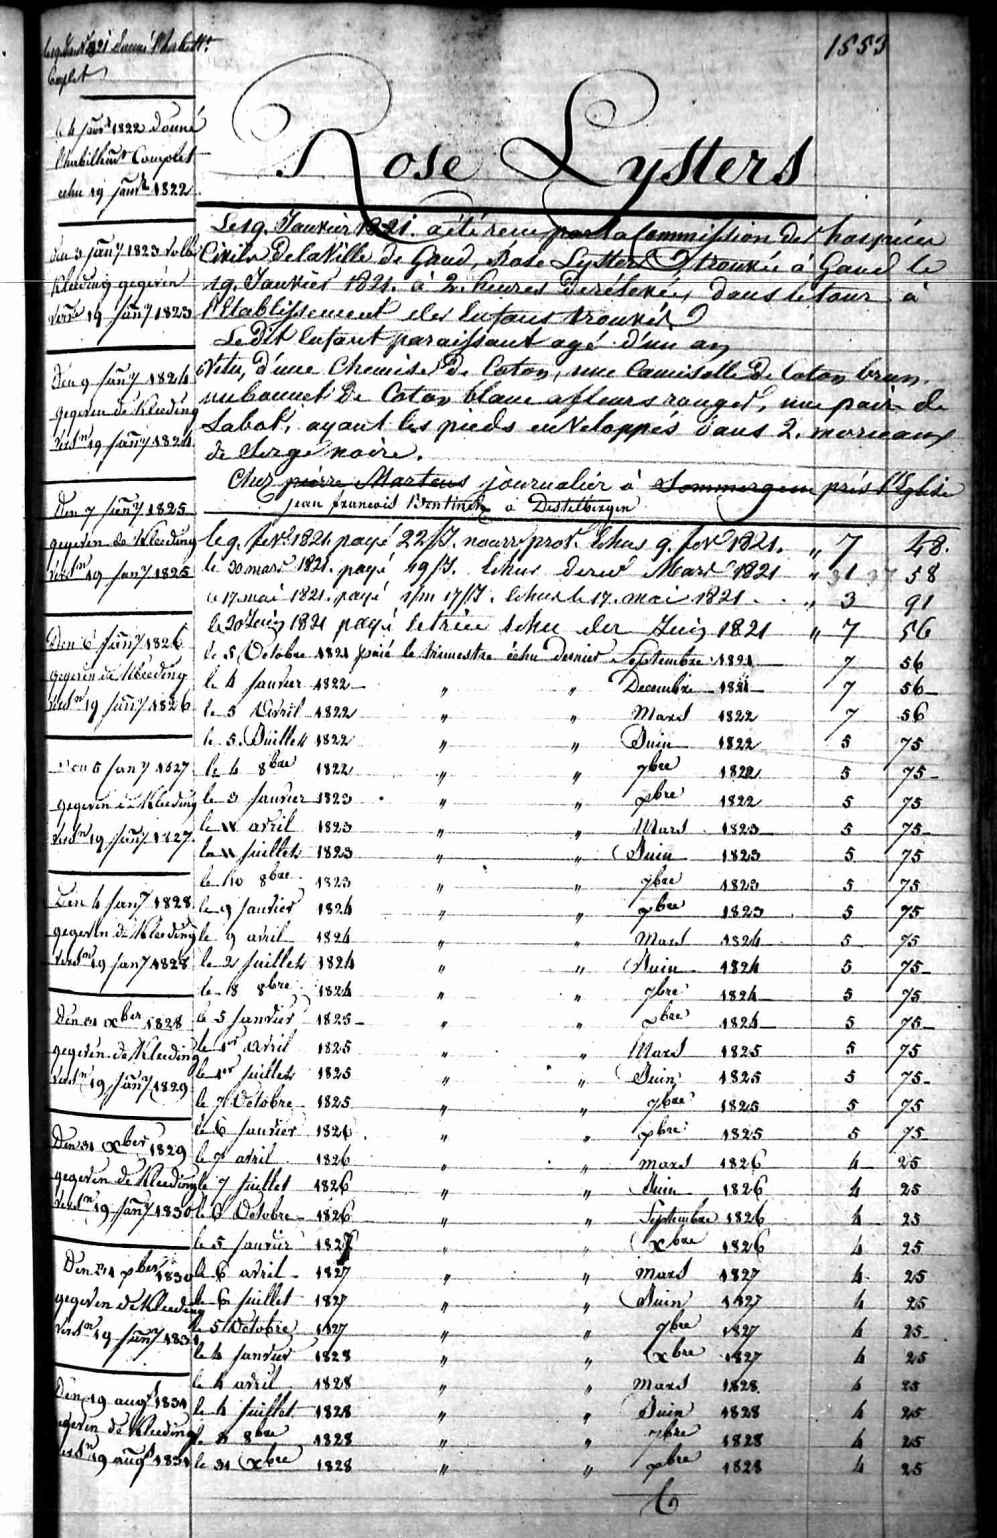 1553
Complet
le 4 janr 1822 donné
l'habillemt Complet
echu 19 janr 1822
Rose Lysters
Le 19. Janvier 1821. a été reçu par la Commission des hospices
Civils de la Ville de Gand, Rose Lysters, trouvée à Gand le
19. Janvier 1821. à 2. heures de relevée, dans le tour à
l'Etablissement des Enfans trouvés
Le Dit Enfant paraissant agé d'un an
Vetu, d'une Chemise De Coton, une Camisolle De Coton brun
un bonnet De Coton blanc a fleurs rouges, une pair de
Sabot, ayant les pieds enveloppés dans 2. morceaux
de Serge noire.
Chez pierre Martens journalier à Sommergem près l'Eglise
jean francois Bentinck à Destelbergen
Den 3 janÿ 1823 volle
Kleeding gegeven
versn 19 janÿ 1823
Den 9 janÿ 1824
gegeven de Kleeding
versn 19 janÿ 1824
Den 7 janÿ 1825
gegeven de Kleeding
versn 19 janÿ 1825
Den 6 janÿ 1826
gegeven de Kleeding
versn 19 janÿ 1826
Den 5 janÿ 1827
gegeven de Kleeding
versn 19 janÿ 1827.
Den 4 janÿ 1828
gegeven de Kleeding
versn 19 janÿ 1828
Den 31 xber 1828
gegeven de Kleeding
versn 19 janÿ 1829
Den 31 xber 1829
gegeven de Kleeding
versn 19 janÿ 1830
Den 31 xber 1830
gegeven de Kleeding
versn 19 janÿ 1831
Den 19 augt 1831
gegeven de Kleeding
versn 19 augt 1831
le 9. fevr. 1821 payé 22/J. nourr provr. Echus 9. fevr 1821. " 7 48.
le 30 mars 1821. payé 49/J. Echus Mars 1821 " 31 58
le 17. mai 1821. payé 1/m 17/J. Echus le 17. mai 1821. " 3 91
le 20 Juin 1821 payé Echu Juin 1821 " 7 56
le 5 Octobre 1821 paié le trimestre échu dernier Septembre 1821 7 56
le 4 Janvier 1822 " " Decembre 1821 7 56
le 5 Avril 1822 " " Mars 1822 7 56
le 5. Juillet 1822 " " Juin 1822 5 75
le 4 8bre 1822 " " 7bre 1822 5 75
le 3 Janvier 1823 " " xbre 1822 5 75
le 11 avril 1823 " " Mars 1823 5 75
le 11 Juillet 1823 " " Juin 1823 5 75
le 10 8bre 1823 " " 7bre 1823 5 75
le 9 Janvier 1824 " " xbre 1823 5 75
le 9 avril 1824 " " Mars 1824 5 75
le 2 Juillet 1824 " " Juin 1824 5 75
le 8 8bre 1824 " " 7bre 1824 5 75
le 5 Janvier 1825 " " xbre 1824 5 75
le 1er Avril 1825 " " Mars 1825 5 75
le 1er Juillet 1825 " " Juin 1825 5 75
le 7 Octobre 1825 " " 7bre 1825 5 75
le 6 Janvier 1826 " " xbre 1825 5 75
le 7 avril 1826 " " mars 1826 4 25
le 7 Juillet 1826 " " Juin 1826 4 25
le 6 Octobre 1826 " " Septembre 1826 4 25
le 5 Janvier 1827 " " Xbre 1826 4 25
le 6 avril 1827 " " mars 1827 4 25
le 6 Juillet 1827 " " Juin 1827 4 25
le 5 Octobre 1827 " " 7bre 1827 4 25
le 4 Janvier 1828 " " Xbre 1827 4 25
le 4 avril 1828 " " mars 1828 4 25
le 4 Juillet 1828 " " Juin 1828 4 25
le 8bre 1828 " " 7bre 1828 4 25
le 31 Xbre 1828 " " xbre 1828 4 25